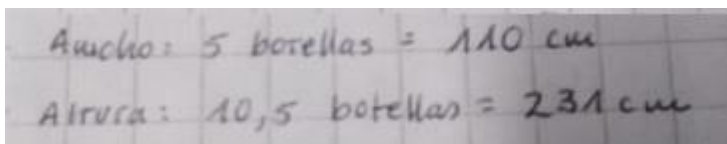 Ancho: 5 botellas = 110 cm
Altura: 10,5 botellas = 231 cm